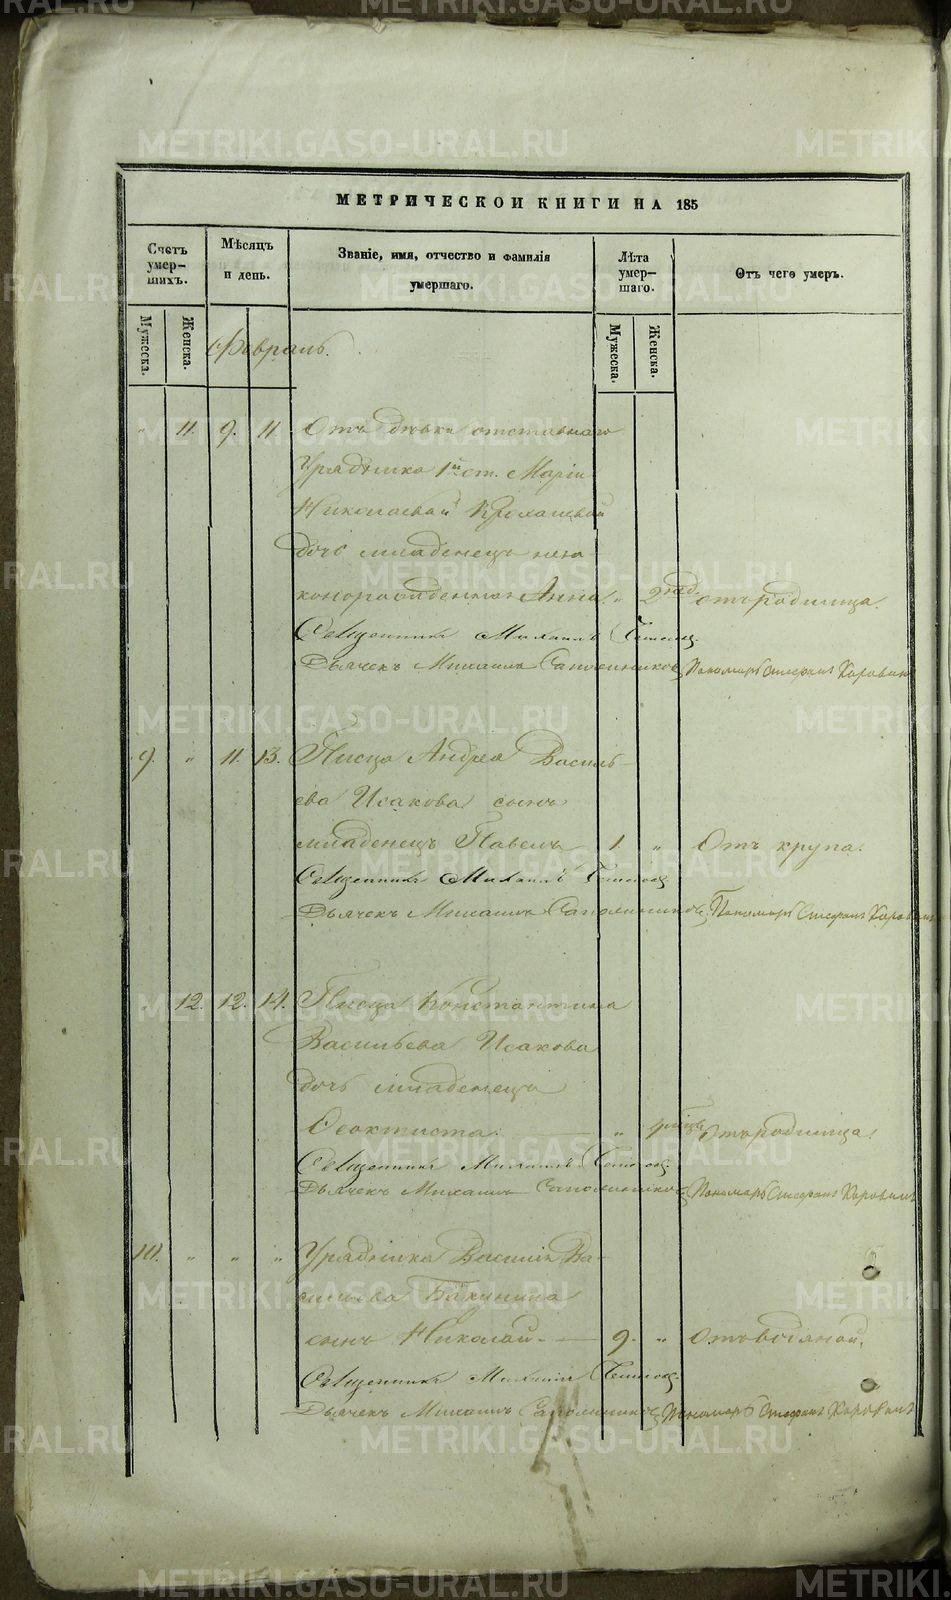 МЕТРИЧЕСКОЙ КНИГИ НА 185
Счетъ умер-шихъ.
Мѣсяцъ и день.
Званіе, имя, отчество и фамилія умершаго.
Лѣта умер-шаго.
Отъ чего умеръ.
Мужеска. Женска. Мужеска. Женска.
Февраль.
" 11. 9. 11 Отъ дѣвки отставнаго
Урядника 1й ст. Маріи
Николаевой
дочь младенецъ неза
коннорожденная Анна. " 2 нед. отъ родимца.
Священникъ Михаилъ
Дьячекъ Михаилъ Сапожниковъ Пономарь Стефанъ Коровин
9. " 11. 13. Писца Андрея Василь-
ева Исакова сынъ
младенецъ Павелъ 1. " Отъ крупа.
Священникъ Михаилъ
Дьячекъ Михаилъ Сапожниковъ. Пономарь Стефанъ Коровинъ
" 12. 12. 14. Писца Константина
Васильева Исакова
дочь младенецъ
Феоктиста. " отъ родимца.
Священникъ Михаилъ
Дьячекъ Михаилъ Сапожниковъ Пономарь Стефанъ Коровинъ
10. " " " Урядника Василія Ва-
сильева
сынъ Николай. 9. " Отъ водяной.
Священникъ Михаилъ
Дьячекъ Михаилъ Сапожниковъ Пономарь Стефанъ Коровинъ
METRIKI.GASO-URAL.RU